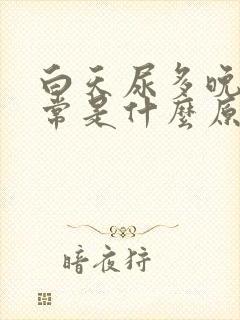 白天尿多晚
常是什麼原
暗夜狩